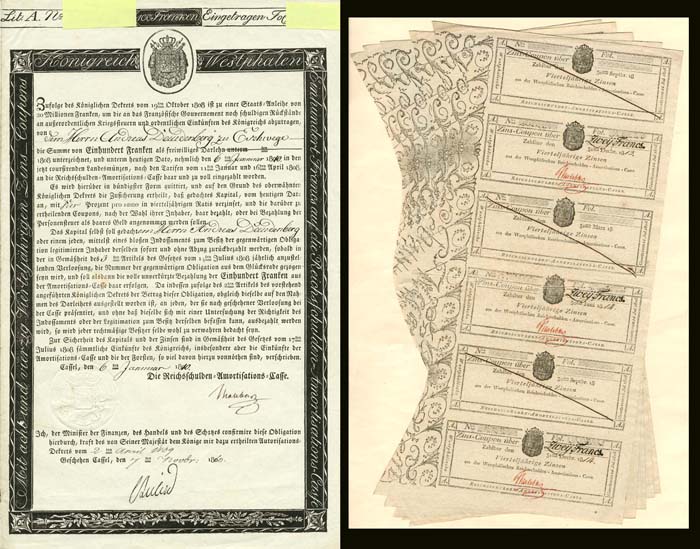 Lit: A. No
100 Franken Eingetragen Fol
Königreich Westphalen
Zufolge des Königlichen Dekrets vom 19ten Oktober 1808 ist zu einer Staats-Anleihe von
20 Millionen Franken, um die an das Französische Gouvernement noch schuldigen Rückstände
an ausserordentlichen Kriegssteuern und ordentlichen Einkünften des Königreichs abzutragen,
von dem Herrn Andreas Deudenberg zu Eschwege
die Summe von Einhundert Franken als freiwilliges Darlehn unterm
1808 unterzeichnet, und unterm heutigen Dato, nehmlich den 6 Januar 1810 in den
jetzt coursirenden Landesmünzen, nach den Tarifen vom 11ten Januar und 16ten April 1808 an
die Reichsschulden-Amortisations-Casse baar und zu voll eingezahlt worden.
Es wird hierüber in bündigster Form quittirt, und auf den Grund des oberwähnten
Königlichen Dekrets die Zusicherung ertheilt, daß gedachtes Kapital, vom heutigen Dato
an, mit vier Prozent in vierteljährigen Ratis verzinset, und die darüber
ertheilenden Coupons, nach der Wahl ihrer Inhaber, baar bezahlt, oder bei Bezahlung der
Personensteuer als baares Geld angenommen werden sollen.
Das Kapital selbst soll gedachtem Herrn Andreas Deudenberg
oder einem jeden, mittelst eines blosen Indossaments zum Besitz der gegenwärtigen Obligation
legitimirten Inhaber derselben sofort und ohne Abzug zurückbezahlt werden, sobald
der in Gemäsheit des 3 Artikels des Gesetzes vom 13ten Julius 1808 jährlich anzustellenden
Verloosung, die Nummer der gegenwärtigen Obligation aus dem Glücksrade gezogen
seyn wird, und soll alsdann die volle unverkürzte Bezahlung der Einhundert Franken aus
der Amortisations-Casse baar erfolgen. Da indessen zufolge des Artikels des vorstehend
angeführten Königlichen Dekrets der Betrag dieser Obligation, obgleich dieselbe auf den
Nahmen des Darleihers ausgestellt worden ist, an jeden, der sie nach geschehener Verloosung der
Casse präsentirt, und ohne daß dieselbe sich mit einer Untersuchung der Richtigkeit des
Indossaments oder der Legitimation zum Besitz derselben befassen kann, ausbezahlt werden
wird, so wird jeder rechtmäßige Besitzer selbe wohl zu verwahren bedacht seyn.
Zur Sicherheit des Kapitals und der Zinsen sind in Gemäsheit des Gesetzes vom
Julius 1808 sämmtliche Einkünfte des Königreichs, insbesondere aber die Einkünfte der
Amortisations-Casse und die der Forsten, so viel davon hierzu vonnöthen sind, verschrieben.
Cassel, den 6ten Januar 1810.
Die Reichsschulden-Amortisations-Casse.
Ich, der Minister der Finanzen, des Handels und des Schatzes confirmire diese Obligation
hierdurch, kraft des von Seiner Majestät dem Könige mir dazu ertheilten Autorisations-
Dekrets vom 2ten April 1809
Geschehen Cassel, den 7ten Novbr. 180
Mit acht und vierzig vierteljährigen Zins-Coupons
Einhundert Franken auf die Reichsschulden-Amortisations-Casse
No Fol.
Zins-Coupon über
Zahlbar den 30sten Septbr. 18
Vierteljährige Zinsen
aus der Westphälischen Reichsschulden-Amortisations-Casse.
Reichsschulden-Amortisations-Casse.
No Fol.
Zins-Coupon über Zwey Francs
Zahlbar den
Vierteljährige Zinsen
aus der Westphälischen Reichsschulden-Amortisations-Casse.
No Fol.
Zins-Coupon über
Zahlbar den 31sten März 18
Vierteljährige Zinsen
aus der Westphälischen Reichsschulden-Amortisations-Casse.
Reichsschulden-Amortisations-Casse.
Zins-Coupon über Zwey Francs
Zahlbar den
Vierteljährige Zinsen
aus der Westphälischen Reichsschulden-Amortisations-Casse.
No Fol.
Zins-Coupon über
Zahlbar den 30sten Septbr. 18
Vierteljährige Zinsen
aus der Westphälischen Reichsschulden-Amortisations-Casse.
Reichsschulden-Amortisations-Casse.
Zins-Coupon über Zwey Francs
Zahlbar den
Vierteljährige Zinsen
aus der Westphälischen Reichsschulden-Amortisations-Casse.